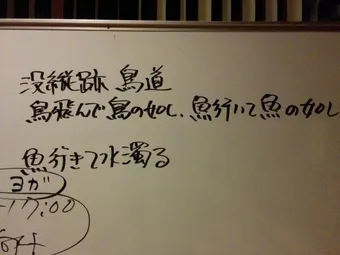 没縦跡 鳥道
鳥飛んで鳥の如し、魚行いて魚の如し
魚行きて水濁る
ヨガ
17:00